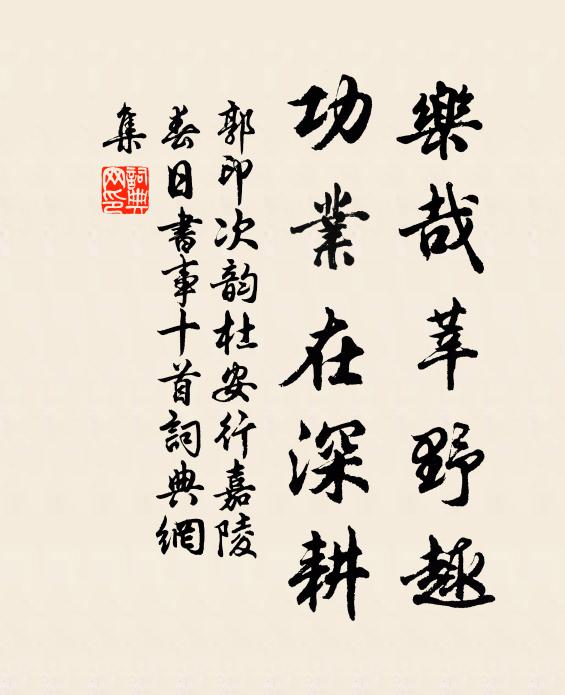 樂哉莘野趣
功業在深耕
郭印次韵杜安行嘉陵
春日書事十首詞典網
集
詞典
網印